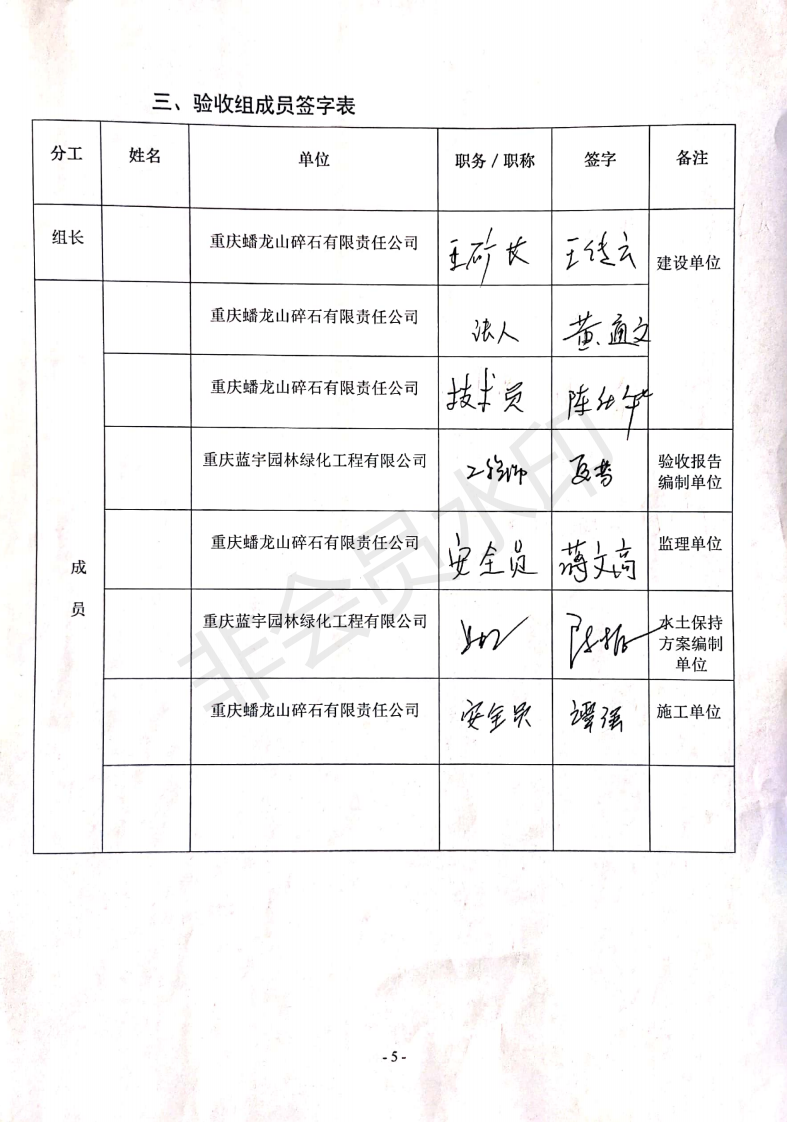 三、验收组成员签字表
分工 姓名 单位 职务/职称 签字 备注
组长 重庆蟠龙山碎石有限责任公司 矿长 王
建设单位
重庆蟠龙山碎石有限责任公司 法人 黄通文
重庆蟠龙山碎石有限责任公司 技术员 陈
重庆蓝宇园林绿化工程有限公司 工程师 验收报告
编制单位
成
员
重庆蟠龙山碎石有限责任公司 安全员 蒋文高 监理单位
重庆蓝宇园林绿化工程有限公司 水土保持
方案编制
单位
重庆蟠龙山碎石有限责任公司 安全员 谭强 施工单位
非会员水印
- 5 -